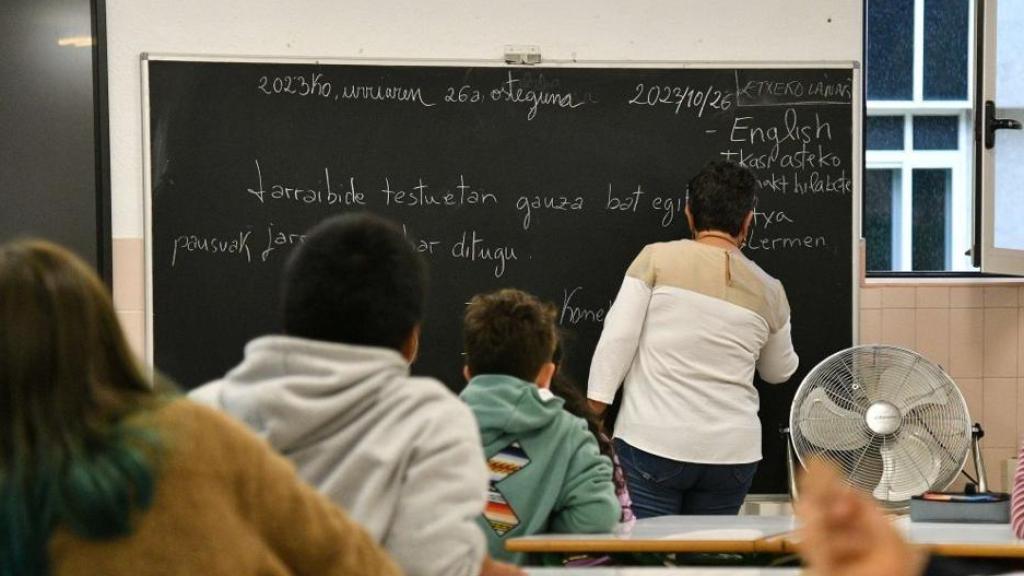 2023ko, urriaren 26a, osteguna
2023/10/26
ETXEKO LANAK
- English
Ikasi asteko
hilabete
Jarraibide testuetan gauza bat egi
pausuak jar ditugu.